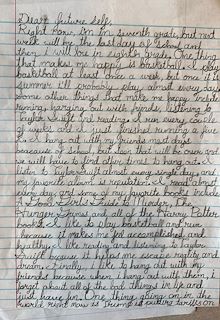 Dear future self,
Right now I'm in seventh grade, but next
week will be the last day of school and
then I will be in eighth grade. One thing
that makes me happy is basketball. I play
basketball at least once a week, but once it's
summer I'll probably play almost every day.
Some other things that make me happy include
running, hanging out with friends, listening to
Taylor Swift and reading. I run every couple
of weeks and I just finished running a five
k. I hang out with my friends most days
because of school, but soon that will be over and
we will have to find other times to hang out. I
listen to Taylor Swift almost every single day, and
my favorite album is reputation. I read almost
every day and some of my favorite books include
A Good Girl's Guide to Murder, The
Hunger Games and all of the Harry Potter
books. I like to play basketball and run
because it makes me feel accomplished and
healthy. I like reading and listening to Taylor
Swift because it helps me escape reality and
dream. Finally, I like to hang out with my
friends because when I hang out with them, I
forget about all of the bad things in life and
just have fun. One thing going on in the
world right now is Trump is putting tariffs on